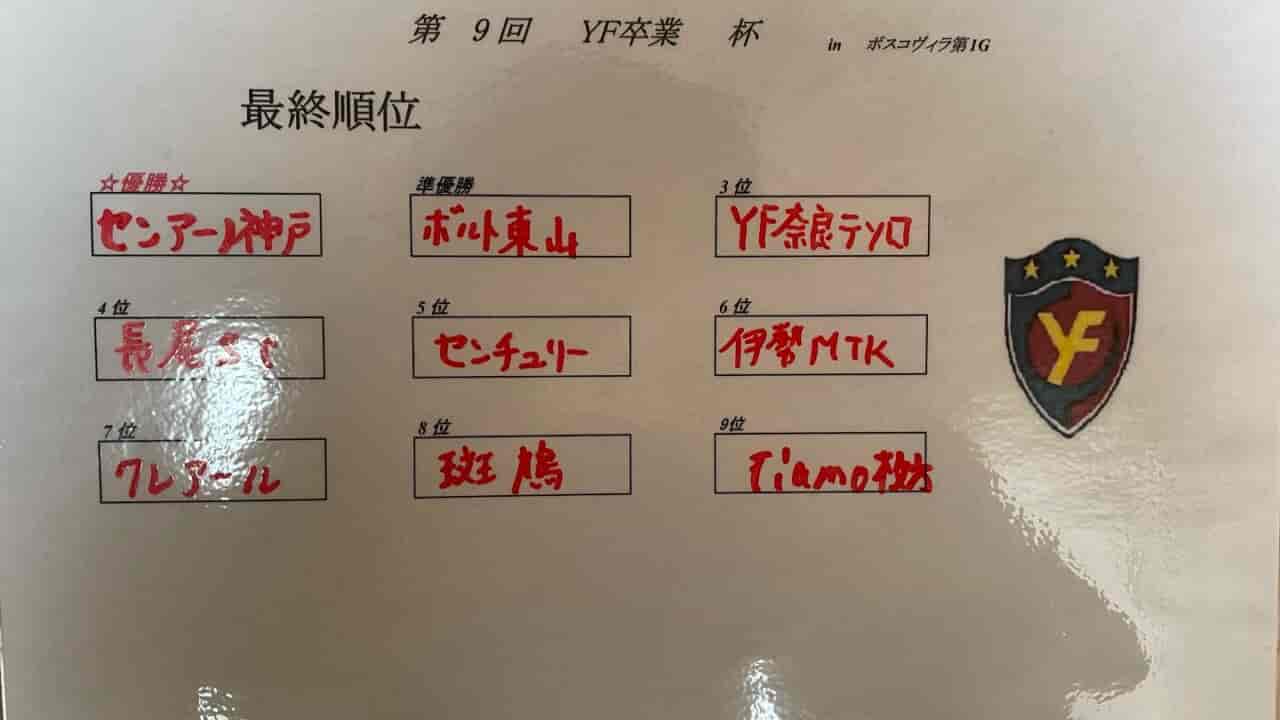 第 9 回 YF卒業 杯 in ボスコヴィラ第1G
最終順位
☆優勝☆ 準優勝 3 位
センアーノ神戸 ボルト東山 YF奈良テソロ
4 位 5 位 6 位
長尾SC センチュリー 伊勢MTK
7 位 8 位 9位
クレアール 斑鳩 Tiamo枚方
YF